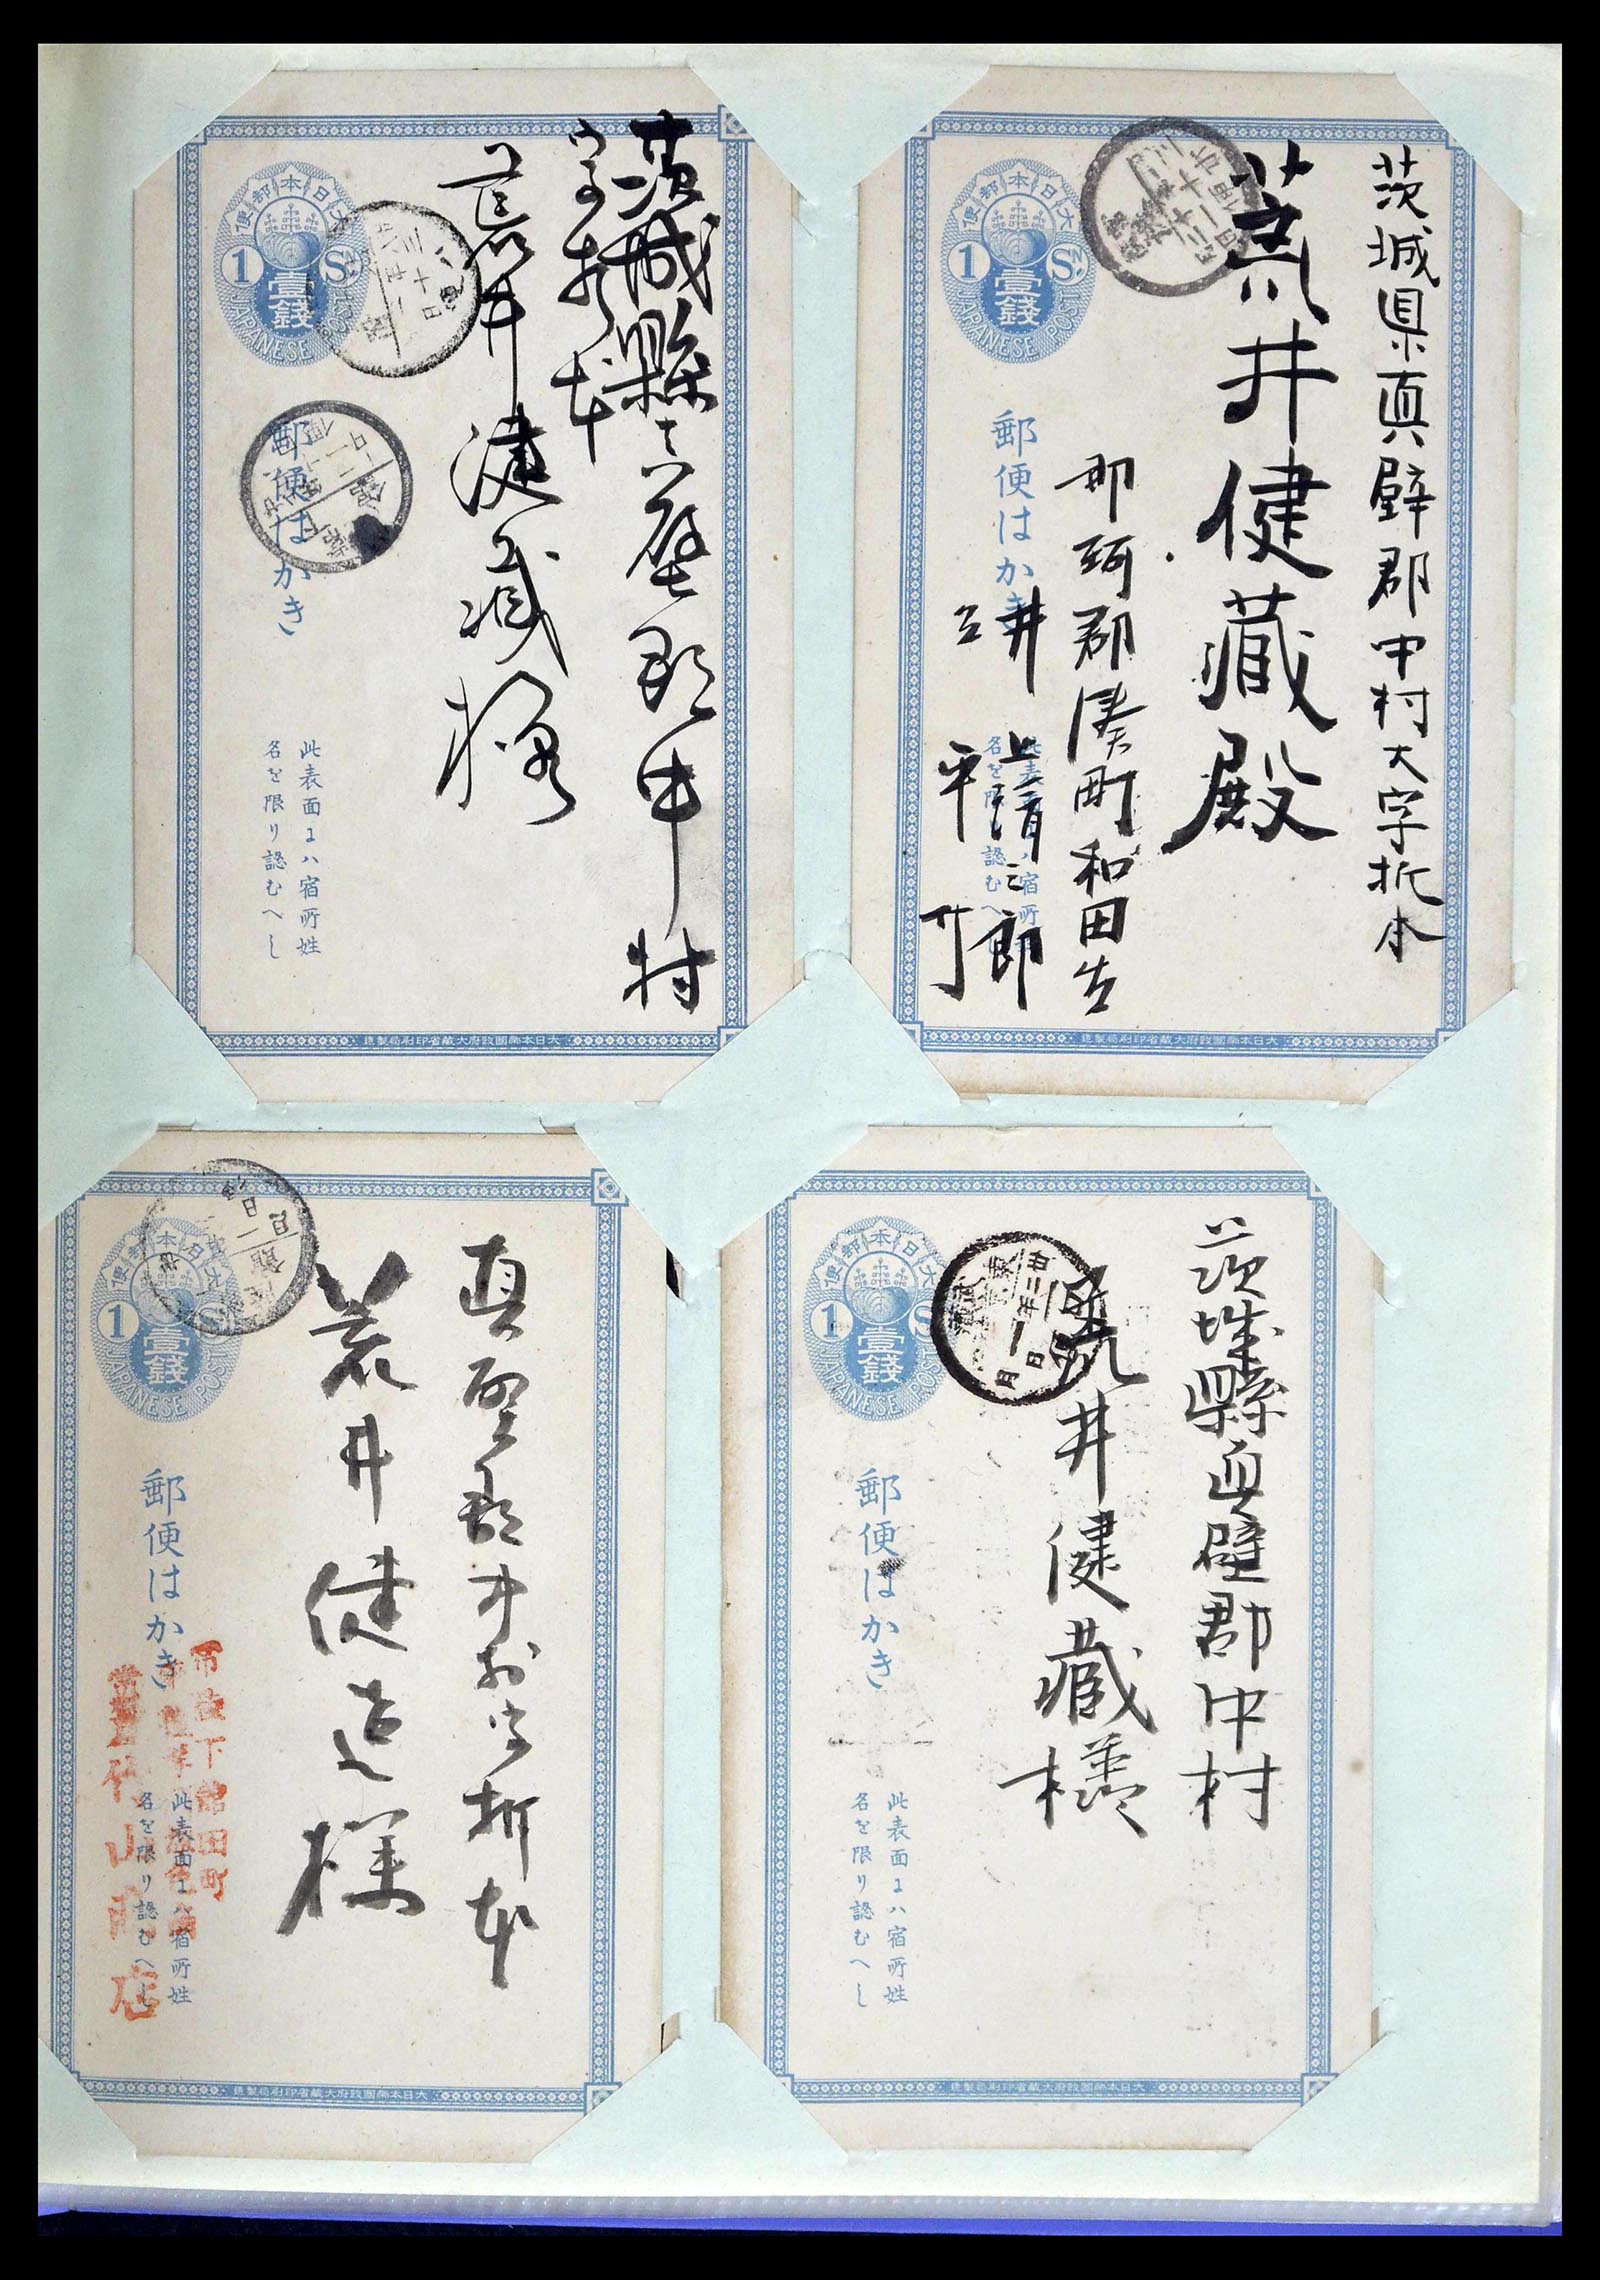 大日本郵便
1 SN
壹錢
JAPANESE POST
郵便はかき
此表面にハ宿所姓
名を限り認むへし
茨城縣真壁郡中村
字折本
荒井健蔵様
大日本帝國政府大蔵省印刷局製造
大日本郵便
1 SN
壹錢
JAPANESE POST
郵便はかき
此表面にハ宿所姓
名を限り認むへし
茨城県真壁郡中村大字折本
荒井健藏殿
那珂郡湊町和田
井上
郎
平
大日本帝國政府大蔵省印刷局製造
大日本郵便
1 S
壹錢
JAPANESE POST
郵便はかき
此表面にハ宿所姓
名を限り認むへし
真壁郡中村大字折本
荒井健造様
下館田町
山
店
大日本帝國政府大蔵省印刷局製造
大日本郵便
1 S
壹錢
JAPANESE POST
郵便はかき
此表面にハ宿所姓
名を限り認むへし
茨城縣真壁郡中村
荒井健藏様
廿二年
一月
日
大日本帝國政府大蔵省印刷局製造